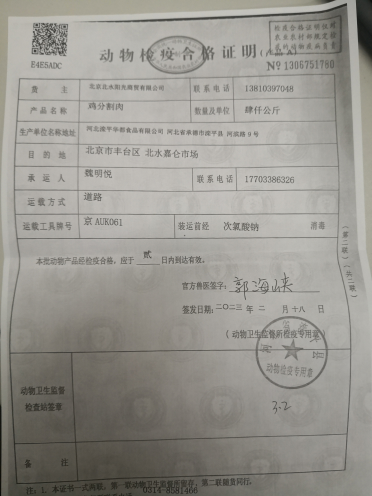 E4E5ADC
动物检疫合格证明(产品B)
№ 1306751780
货 主 北京北水阳光商贸有限公司 联系电话 13810397048
产品名称 鸡分割肉 数量及单位 肆仟公斤
生产单位名称地址 河北滦平华都食品有限公司 河北省承德市滦平县
目的地 北京市丰台区 北水嘉仑市场
承运人 魏明悦 联系电话 17703386326
运载方式 道路
运载工具牌号 京AUK061 装运前经 次氯酸钠 消毒
本批动物产品经检疫合格,应于 贰 日内到达有效。
官方兽医签字: 郭海峡
签发日期:二〇二三年 二 月 十八 日
(动物卫生监督所检疫专用章)
动物检疫专用章
3.2
动物卫生监督
检查站签章
备 注
(第二联)(共二联)
注:1. 本证书一式两联,第一联动物卫生监督所留存,第二联随货同行。
0314-8581466